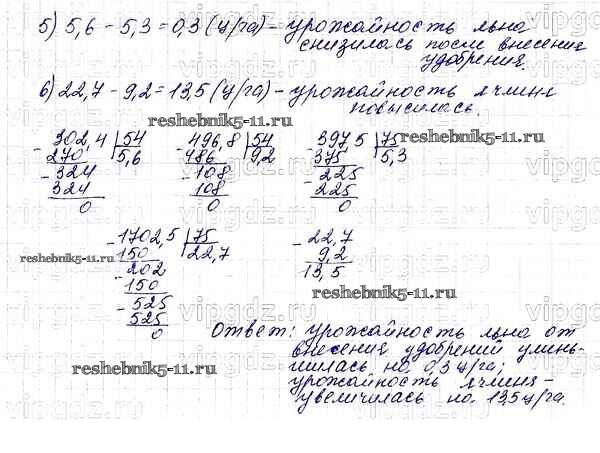 5) 5,6 - 5,3 = 0,3 (ц/га) - урожайность льна
снизилась после внесения
удобрения.
6) 22,7 - 9,2 = 13,5 (ц/га) - урожайность ячменя
повысилась.
reshebnik5-11.ru
302,4 | 54
270 5,6
- 324
324
0
- 496,8 | 54
486 9,2
- 108
108
0
- 397,5 | 75
375 5,3
- 225
225
0
reshebnik5-11.ru
- 1702,5 | 75
150 22,7
- 202
150
- 525
525
0
- 22,7
9,2
13,5
reshebnik5-11.ru
reshebnik5-11.ru
Ответ: урожайность льна от
внесения удобрений умень-
шилась на 0,3 ц/га;
урожайность ячменя -
увеличилась на 13,5 ц/га.
reshebnik5-11.ru
vipgdz.ru